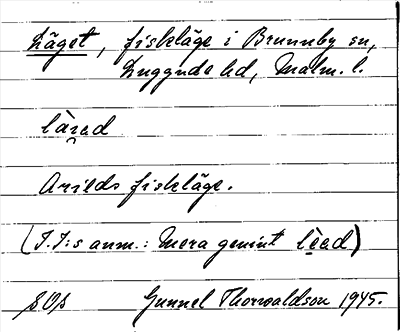 Läget, fiskläge i Brunnby sn,
Luggude hd, Malm. l.
làrad
Arilds fiskläge.
(I.I:s anm.: Mera genuint lèad)
SOS Gunnel Thorwaldson 1945.